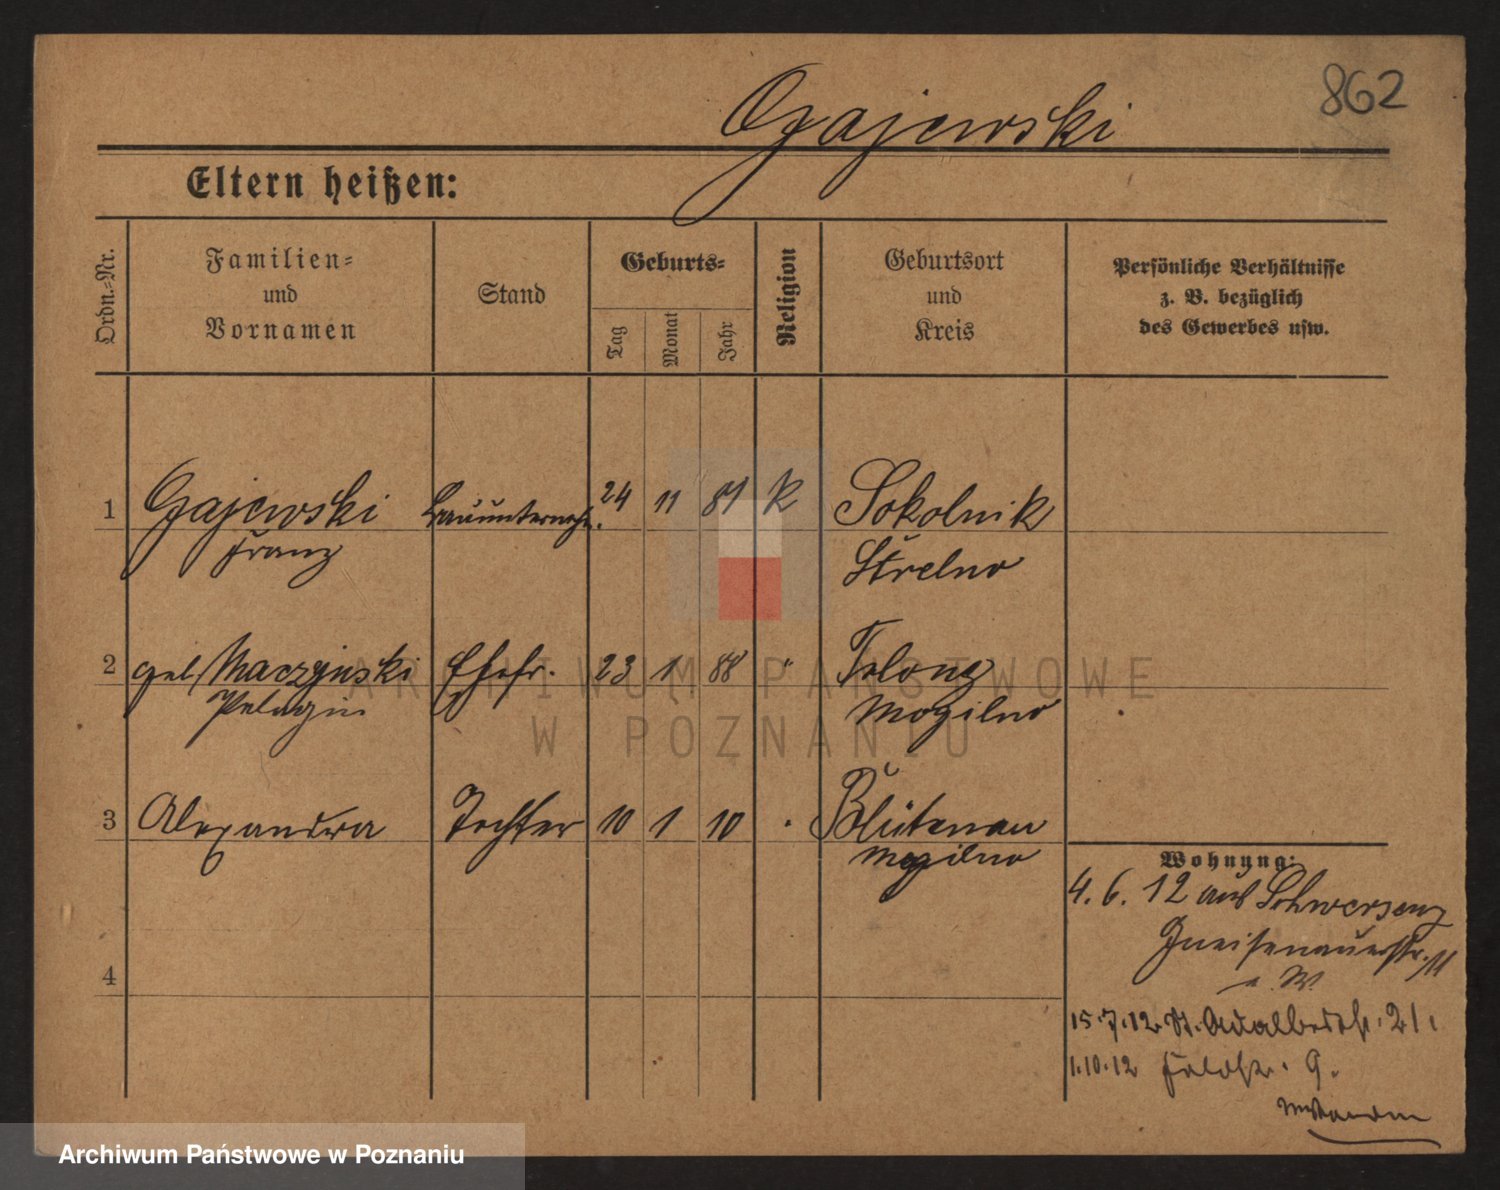 862
Gajewski
Eltern heißen:
Ordn.-Nr.
Familien-
und
Vornamen
Stand
Geburts-
Tag
Monat
Jahr
Religion
Geburtsort
und
Kreis
Persönliche Verhältnisse
z. B. bezüglich
des Gewerbes usw.
1 Gajewski Bauunternehm. 24 11 81 K Sokolnik
Franz Strelno
2 geb. Maczynski Ehefr. 23 1 88 " 
Pelagia Mogilno
3 Alexandra Tochter 10 1 10 " Blütenau
Mogilno
Wohnung:
4. 6. 12 aus Schwersenz
Gneisenauerstr. 11
15.7.12. St. Adalbertstr. 21.
4
1.10.12 Feldstr. 9.
ARCHIWUM PAŃSTWOWE
W POZNANIU
Archiwum Państwowe w Poznaniu